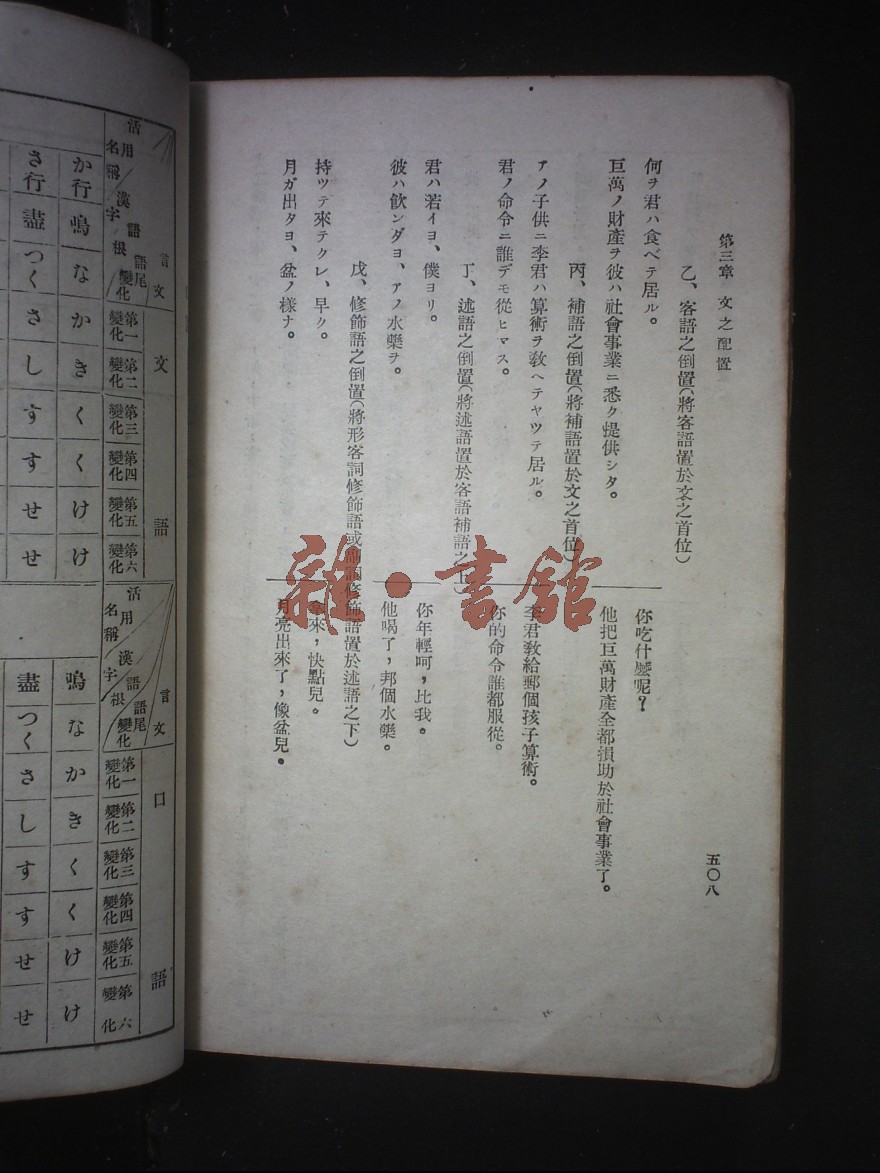 第三章 文之配置
五〇八
乙、客語之倒置(將客語置於文之首位)
何ヲ君ハ食ベテ居ル。
你吃什麽呢?
巨萬ノ財產ヲ彼ハ社會事業ニ悉ク提供シタ。
他把巨萬財產全都損助於社會事業了。
丙、補語之倒置(將補語置於文之首位)
アノ子供ニ李君ハ算術ヲ敎ヘテヤツテ居ル。
李君敎給郵個孩子算術。
君ノ命令ニ誰デモ從ヒマス。
你的命令誰都服從。
丁、述語之倒置(將述語置於客語補語之上)
君ハ若イヨ、僕ヨリ。
你年輕呵,比我。
彼ハ飮ンダヨ、アノ水藥ヲ。
他喝了,邦個水藥。
戊、修飾語之倒置(將形客詞修飾語或副詞修飾語置於述語之下)
持ツテ來テクレ、早ク。
來,快點兒。
月ガ出タヨ、盆ノ樣ナ。
月亮出來了,像盆兒。
雜·書館
活用名稱
漢字
語根
語尾變化
言文
文語
第一變化
第二變化
第三變化
第四變化
第五變化
第六變化
か行 鳴 な か き く く け け
さ行 盡 つく さ し す す せ せ
活用名稱
漢字
語根
語尾變化
言文
口語
第一變化
第二變化
第三變化
第四變化
第五變化
第六變化
鳴 な か き く く け け
盡 つく さ し す す せ せ